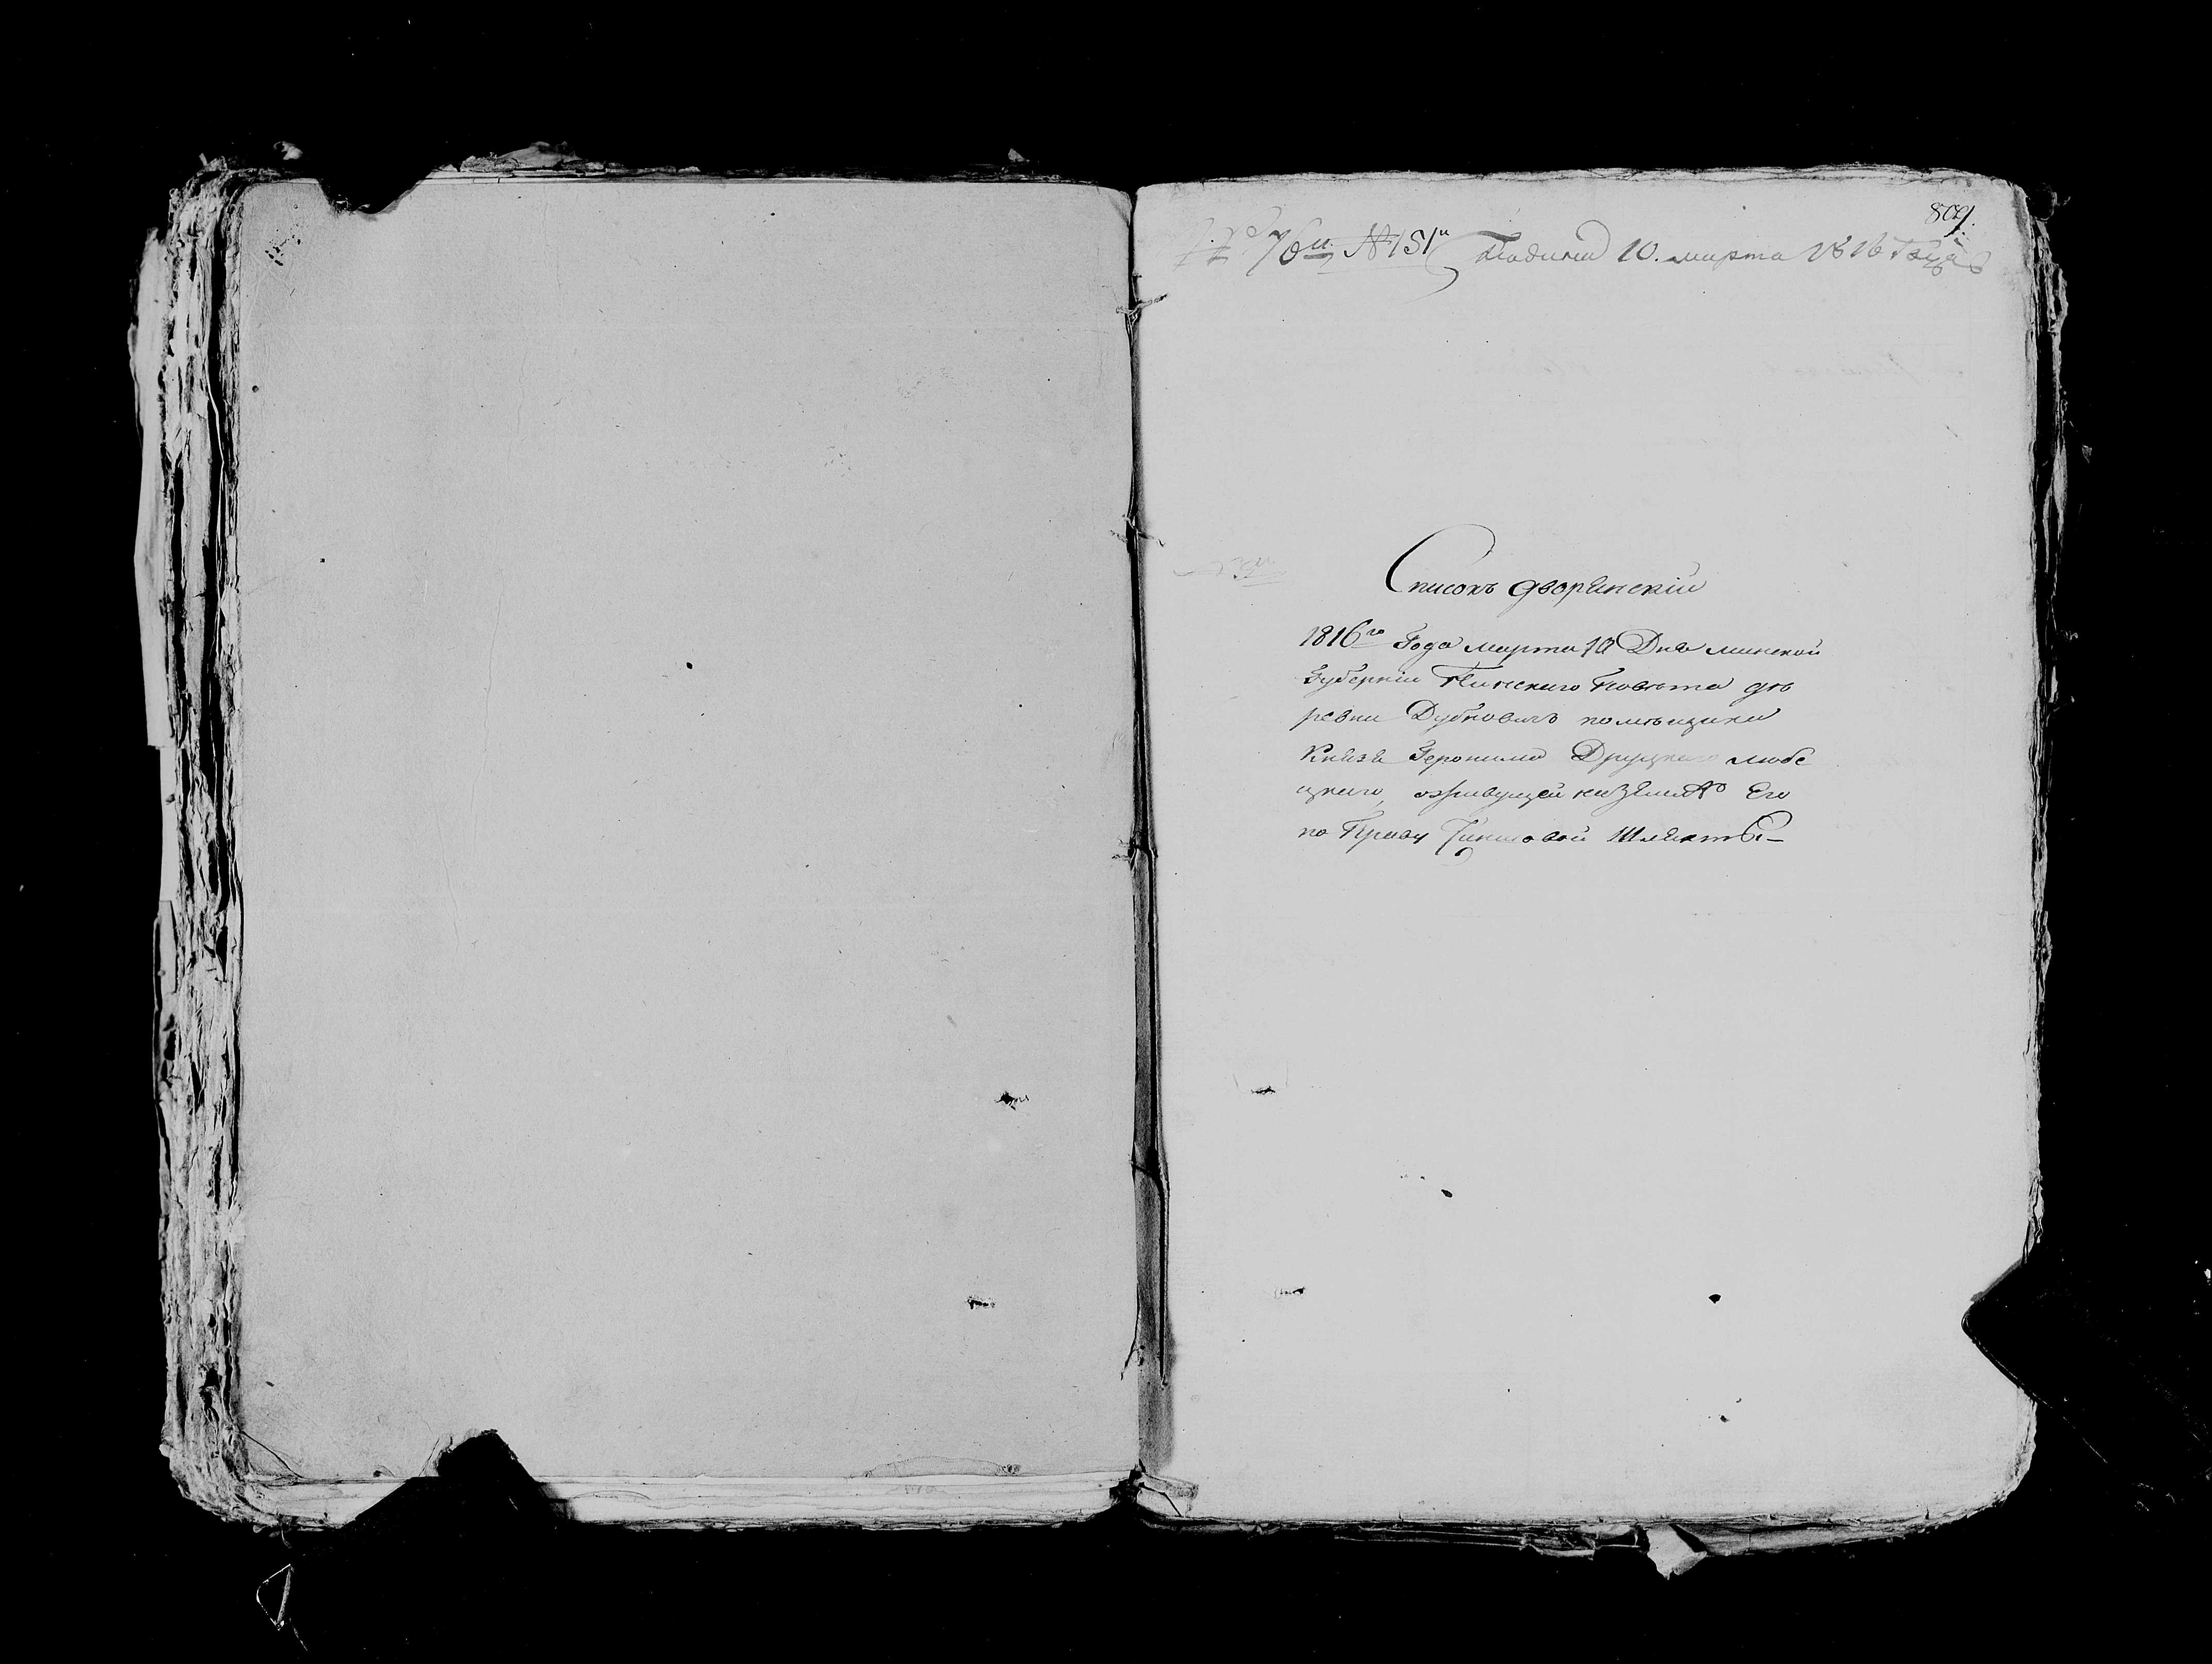 809.
76 №151 Подана 10. марта 1816 Года
Списокъ дворянскій
1816го Года марта 10 Дня минской
Губерніи Пинского Повѣта дѣ
ревни Дубновичъ помѣщика
Князя Героныма Друцкого любе
цкого, оживущей на Земли Его
по Праву Чиншовой Шляхты